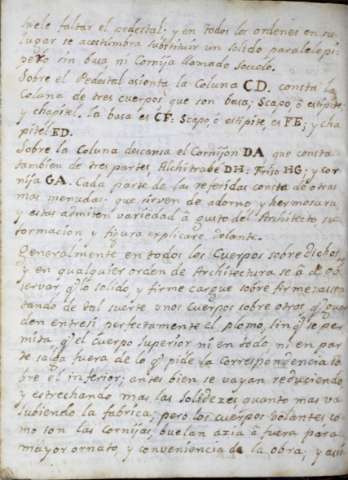 suele faltar el pedestal; y en todos los ordenes en su
lugar se acostumbra substituir un solido paralelepi-
pedo sin basa, ni Cornija llamado Socolo.
Sobre el Pedestal asienta la Coluna CD. consta la
Coluna de tres cuerpos que son basa, Scapo, ò estipite
y chapitel. La basa es CF. Scapo, ò estipite, es FE; y cha
pitel ED.
Sobre la Coluna descansa el Cornijon DA que consta
tambien de tres partes, Alchitrabe DH. Friso HG; y cor
nija GA. Cada parte de las referidas consta de otras
mas menudas, que sirven de adorno y hermosura
y estas admiten variedad à gusto del Architecto su
formacion y figura explicarè delante.
Generalmente en todos los Cuerpos sobre dichos
y en qualquier orden de Architectura se à de ob
servar q̃ lo solido y firme cargue sobre firme asen
tando de tal suerte unos Cuerpos sobre otros q̃ guar
den entre si perfectamente el plomo, sin q̃ se per
mita q̃ el cuerpo superior ni en todo ni en par
te salga fuera de lo q̃ pide la correspondencia so
bre el inferior; antes bien se vayan reduciendo
y estrechando mas las solidezes quanto mas va
subiendo la fabrica, pero los cuerpos volantes co
mo son las Cornijas, buelan azia à fuera para
mayor ornato, y conveniencia de la obra; y assi